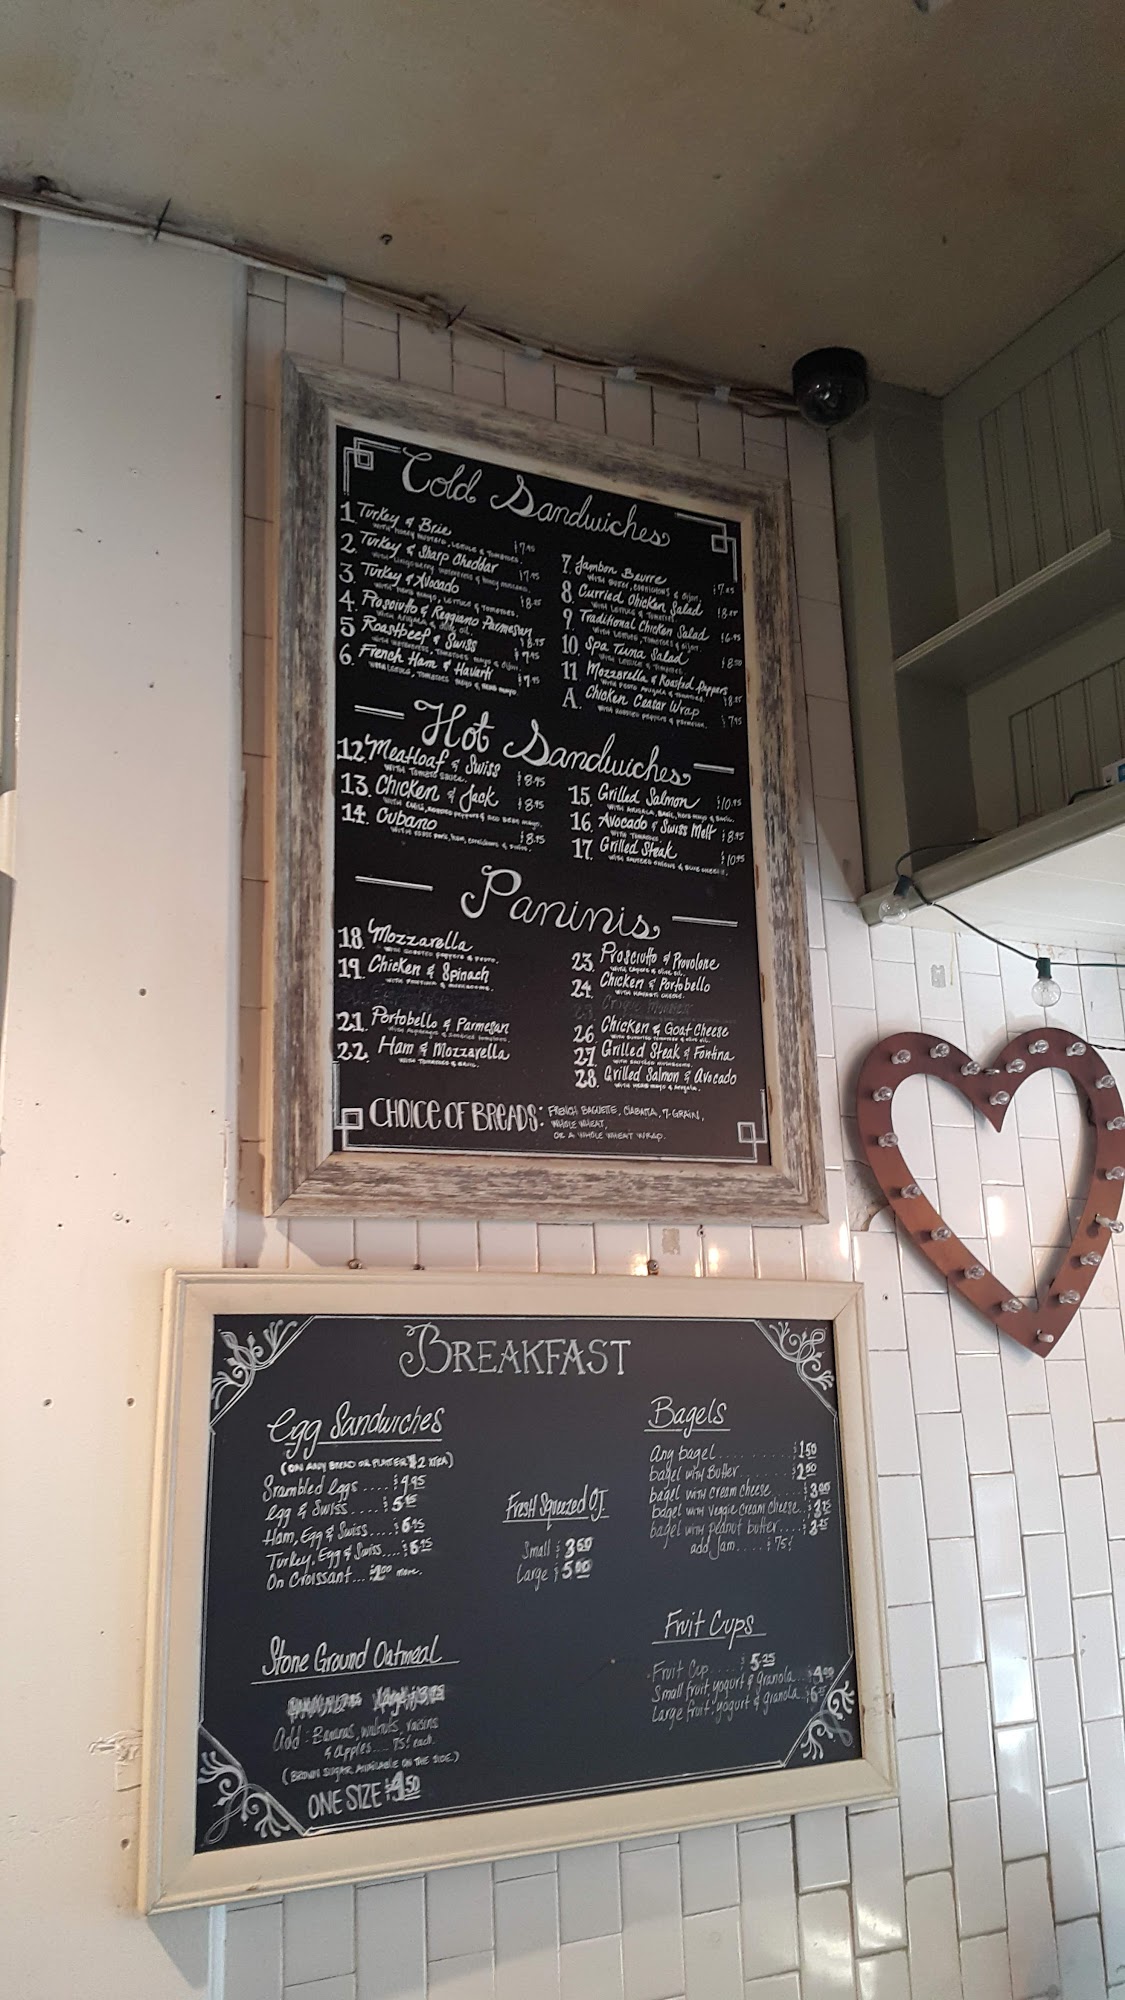 Cold Sandwiches
1 Turkey & Brie $7.95
WITH HONEY MUSTARD, LETTUCE & TOMATOES.
2. Turkey & Sharp Cheddar $7.95
3. Turkey & Avocado
WITH HERB MAYO, LETTUCE & TOMATOES.
4. Prosciutto & Reggiano Parmesan $8.95
WITH ARUGULA & OLIVE OIL.
5 Roastbeef & Swiss $7.95
WITH WATERCRESS, TOMATOES, MAYO & DIJON.
6. French Ham & Havarti $7.95
WITH LETTUCE, TOMATOES MAYO & HERB MAYO.
7. Jambon Beurre
WITH BUTTER, CORNICHONS & DIJON.
8 Curried Chicken Salad
WITH LETTUCE & TOMATOES.
9 Traditional Chicken Salad $6.95
WITH LETTUCE, TOMATOES & DIJON.
10 Spa Tuna Salad $8.50
WITH LETTUCE & TOMATOES.
11 Mozzarella & Roasted Peppers
WITH PESTO ARUGULA & TOMATOES.
A. Chicken Ceasar Wrap $7.95
WITH ROASTED PEPPERS & PARMESAN.
Hot Sandwiches
12. Meatloaf & Swiss $8.95
WITH TOMATO SAUCE.
13. Chicken & Jack $8.95
14. Cubano $8.95
15. Grilled Salmon $10.95
16. Avocado & Swiss Melt $8.95
WITH TOMATOES
17. Grilled Steak $10.95
WITH SAUTEED ONIONS & BLUE CHEESE.
Paninis
18. Mozzarella
WITH ROASTED PEPPERS & PESTO.
19. Chicken & Spinach
WITH FONTINA & MUSHROOMS.
21. Portobello & Parmesan
22. Ham & Mozzarella
23. Prosciutto & Provolone
24. Chicken & Portobello
WITH HAVARTI CHEESE.
26 Chicken & Goat Cheese
27. Grilled Steak & Fontina
28. Grilled Salmon & Avocado
WITH HERB MAYO & ARUGULA.
CHOICE OF BREADS: FRENCH BAGUETTE, CIABATTA, 7-GRAIN,
WHOLE WHEAT,
OR A WHOLE WHEAT WRAP.
BREAKFAST
Egg Sandwiches
(ON ANY BREAD OR PLATTER $2 XTRA)
Srambled eggs .... $4.95
egg & Swiss ....
Ham, Egg & Swiss .... $6.95
Turkey, Egg & Swiss ....
On Croissant ... $2.00 more.
Stone Ground Oatmeal
Add: Bananas, walnuts, raisins
& apples .... 75¢ each.
(BROWN SUGAR AVAILABLE ON THE SIDE.)
ONE SIZE $4.50
Fresh Squeezed O.J.
Small $3.60
Large $5.00
Bagels
Any bagel .......... $1.50
bagel with Butter ........ $2.00
bagel with cream cheese ..... $3.00
bagel with veggie cream cheese..
bagel with peanut butter ....
add Jam .... 75¢
Fruit Cups
Fruit Cup .... $5.25
Small fruit, yogurt & granola.. $4.00
Large fruit, yogurt & granola..